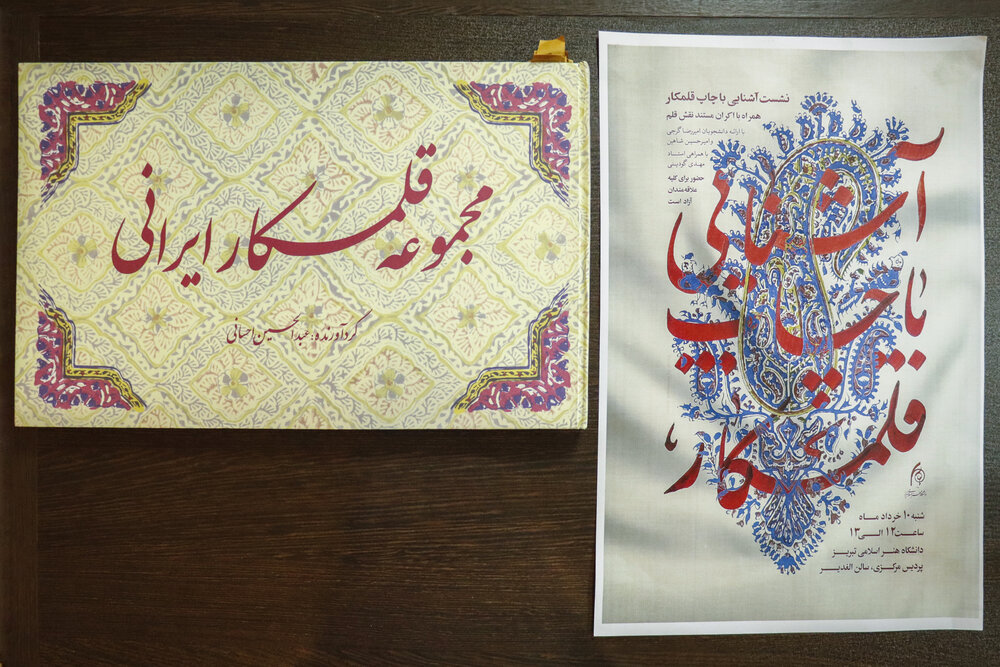 مجموعه قلمکار ایرانی
گردآورنده: عبدالحسین احسانی
نشست آشنایی با چاپ قلمکار
همراه با اکران مستند نقش قلم
با ارائه دانشجویان امیررضا گرجی
و امیرحسین شاهین
با همراهی استاد
مهدی گودینی
حضور برای کلیه
علاقه‌مندان
آزاد است
آشنایی
با چاپ
قلمکار
شنبه ۱۰ خرداد ماه
ساعت ۱۲ الی ۱۳
دانشگاه هنر اسلامی تبریز
پردیس مرکزی، سالن الغدیر